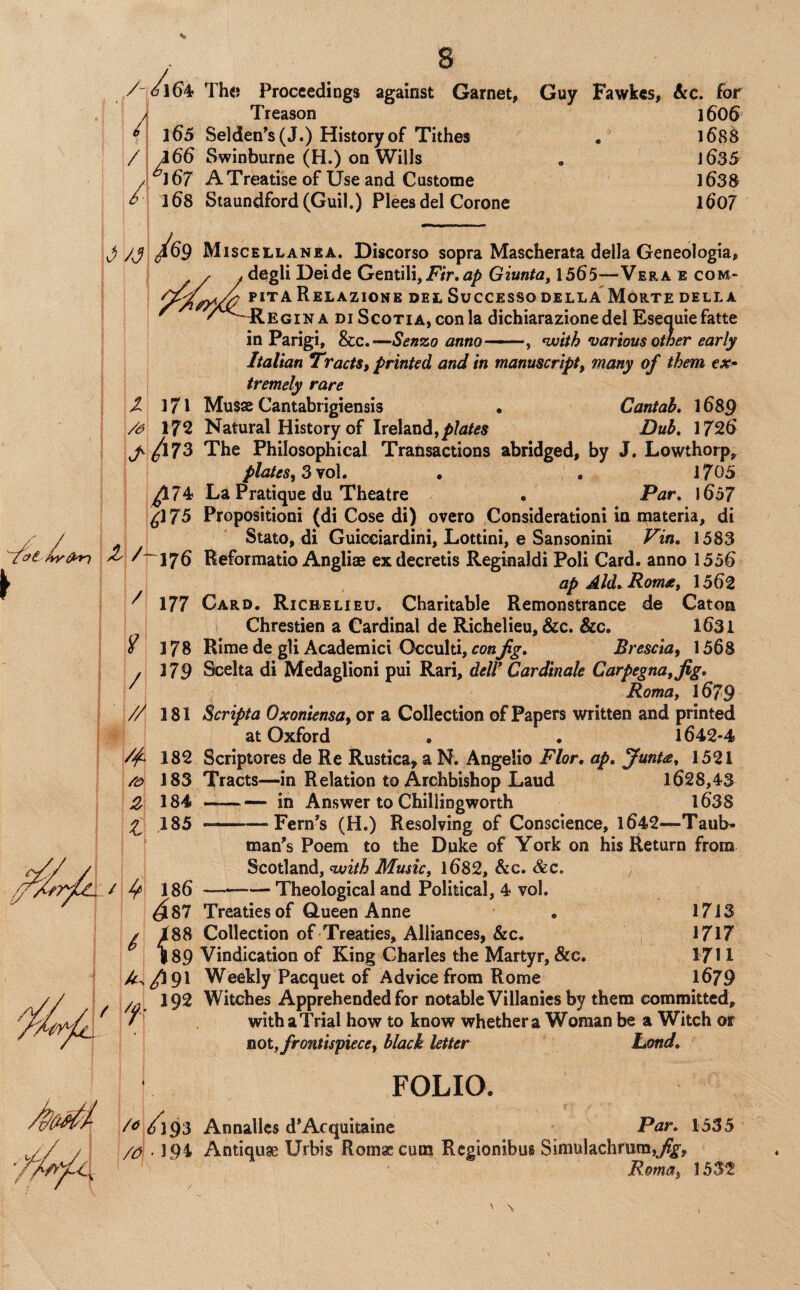 8
164 The Proceedings against Garnet, Guy Fawkes, &c. for
Treason 1606
165 Selden's (J.) History of Tithes . 1688
166 Swinburne (H.) on Wills . 1635
167 A Treatise of Use and Custome 1638
168 Staundford (Guil.) Plees del Corone 1607
169 Miscellanea. Discorso sopra Mascherata della Geneologia,
degli Dei de Gentili, Fir. ap Giunta, 1565—Vera e com-
pita Relazione del Successo della Morte della
Regina di Scotia, con la dichiarazione del Esequie fatte
in Parigi, &c.—Senzo anno——, with various other early
Italian Tracts, printed and in manuscript, many of them ex-
tremely rare
2 171 Musæ Cantabrigiensis . Cantab. 1689
10 172 Natural History of Ireland, plates Dub. 1726
173 The Philosophical Transactions abridged, by J. Lowthorp,
plates, 3 vol. . . 1705
174 La Pratique du Theatre . Par. 1657
175 Propositioni (di Cose di) overo Considerationi in materia, di
Stato, di Guicciardini, Lottini, e Sansonini Vin. 1583
176 Reformatio Angliæ ex decretis Reginaldi Poli Card. anno 1556
ap Ald. Romæ, 1562
177 Card. Richelieu. Charitable Remonstrance de Caton
Chrestien a Cardinal de Richelieu, &c. &c. 1631
178 Rime de gli Academici Occulti, con fig. Brescia, 1568
179 Scelta di Medaglioni pui Rari, dell' Cardinale Carpegna, fig.
Roma, 1679
181 Scripta Oxoniensa, or a Collection of Papers written and printed
at Oxford . . 1642-4
182 Scriptores de Re Rustica, a N. Angelio Flor. ap. Juntæ, 1521
183 Tracts—in Relation to Archbishop Laud 1628,43
2 184 ——— in Answer to Chillingworth 1638
185 ——— Fern's (H.) Resolving of Conscience, 1642—Taub-
man's Poem to the Duke of York on his Return from
Scotland, with Music, 1682, &c. &c.
186 ——— Theological and Political, 4 vol.
187 Treaties of Queen Anne . 1713
188 Collection of Treaties, Alliances, &c. 1717
189 Vindication of King Charles the Martyr, &c. 1711
191 Weekly Pacquet of Advice from Rome 1679
192 Witches Apprehended for notable Villanies by them committed,
with a Trial how to know whether a Woman be a Witch or
not, frontispiece, black letter Lond.
FOLIO.
10 193 Annalles d'Acquitaine Par. 1535
10 194 Antiquæ Urbis Romæ cum Regionibus Simulachrum, fig,
Roma, 1532